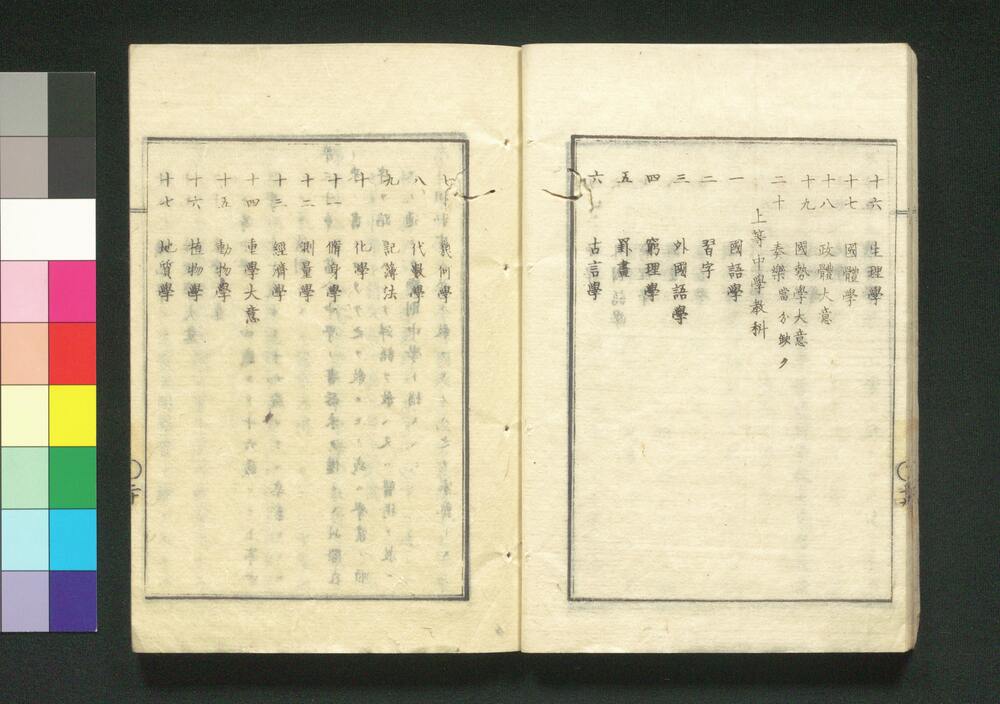 十六 生理學
十七 國體學
十八 政體大意
十九 國勢學大意
二十 奏樂 當分缺ク
上等中學教科
一 國語學
二 習字
三 外國語學
四 窮理學
五 罫畫
六 古言學
七 幾何學
八 代數學
九 記簿法
十 化學
十一 修身學
十二 測量學
十三 經濟學
十四 重學大意
十五 動物學
十六 植物學
十七 地質學